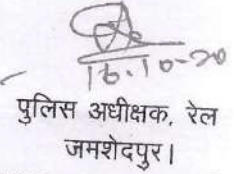 16.10-20
पुलिस अधीक्षक, रेल
जमशेदपुर।